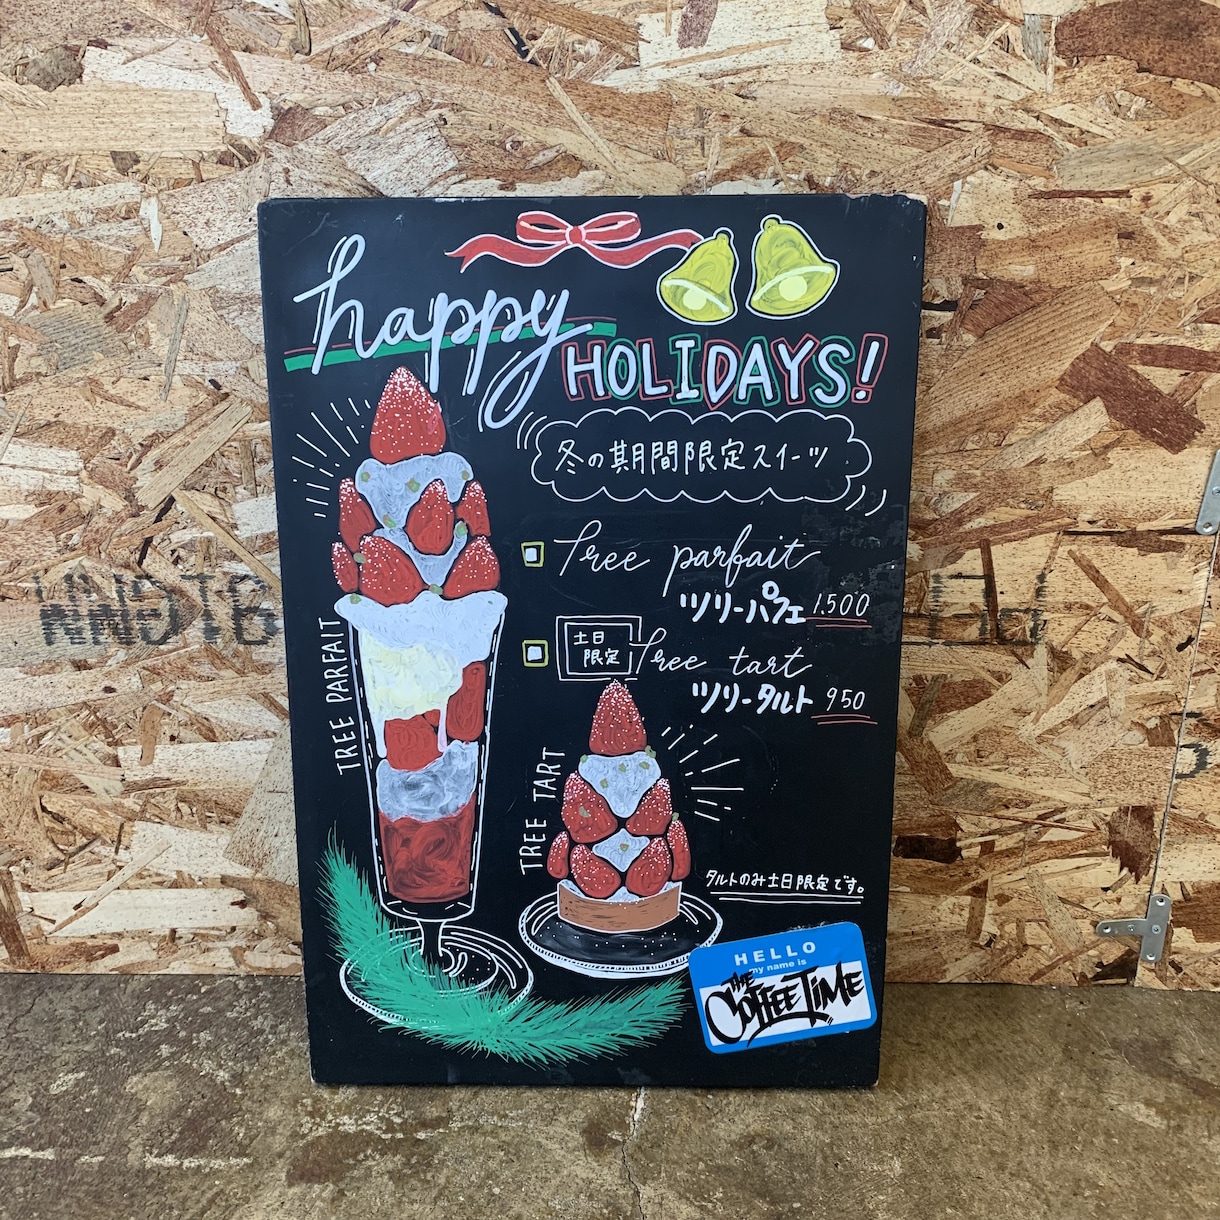 happy
HOLIDAYS!
冬の期間限定スイーツ
Tree parfait
ツリーパフェ 1.500
土日
限定
Tree tart
ツリータルト 950
TREE PARFAIT
TREE TART
タルトのみ土日限定です。
HELLO
my name is
THE
COFFEE TIME